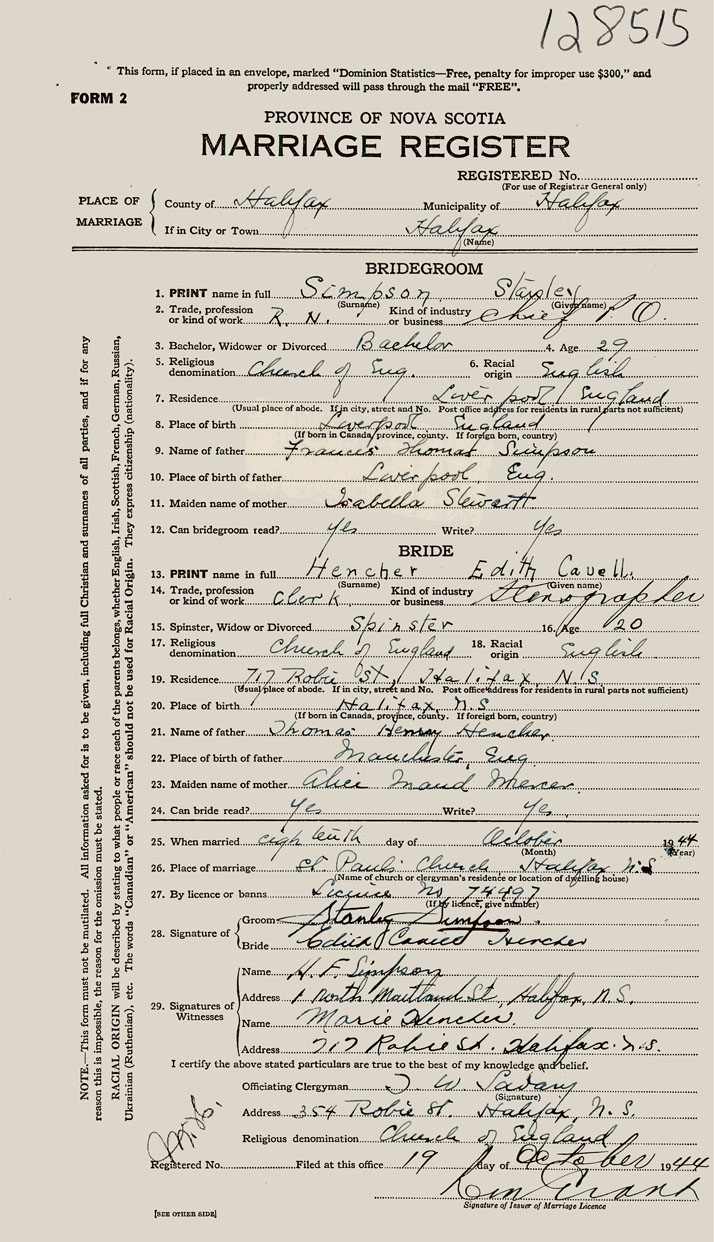 128515
This form, if placed in an envelope, marked "Dominion Statistics—Free, penalty for improper use $300," and
properly addressed will pass through the mail "FREE".
FORM 2
PROVINCE OF NOVA SCOTIA
MARRIAGE REGISTER
REGISTERED No.
(For use of Registrar General only)
PLACE OF MARRIAGE
County of Halifax Municipality of Halifax
If in City or Town Halifax
(Name)
BRIDEGROOM
1. PRINT name in full Simpson Stanley
(Surname) (Given name)
2. Trade, profession or kind of work R. N. Kind of industry or business Chief P. O.
3. Bachelor, Widower or Divorced Bachelor 4. Age 29
5. Religious denomination Church of Eng. 6. Racial origin English
7. Residence Liverpool, England
(Usual place of abode. If in city, street and No. Post office address for residents in rural parts not sufficient)
8. Place of birth Liverpool England
(If born in Canada, province, county. If foreign born, country)
9. Name of father Francis Thomas Simpson
10. Place of birth of father Liverpool, Eng.
11. Maiden name of mother Isabella Stewart
12. Can bridegroom read? Yes Write? Yes
BRIDE
13. PRINT name in full Hencher Edith Cavell.
(Surname) (Given name)
14. Trade, profession or kind of work Clerk Kind of industry or business Stenographer
15. Spinster, Widow or Divorced Spinster 16. Age 20
17. Religious denomination Church of England 18. Racial origin English
19. Residence 717 Robie St, Halifax, N.S.
(Usual place of abode. If in city, street and No. Post office address for residents in rural parts not sufficient)
20. Place of birth Halifax, N.S
(If born in Canada, province, county. If foreign born, country)
21. Name of father Thomas Henry Hencher
22. Place of birth of father Manchester, Eng
23. Maiden name of mother Alice Maud Mercer
24. Can bride read? Yes Write? Yes.
25. When married eighteenth day of October 1944
(Month) (Year)
26. Place of marriage St Paul's Church, Halifax N.S.
(Name of church or clergyman's residence or location of dwelling house)
27. By licence or banns Licence No. 74497
(If by licence, give number)
28. Signature of
Groom Stanley Simpson.
Bride Edith Cavell Hencher
29. Signatures of Witnesses
Name H. F. Simpson
Address 1 North Maitland St, Halifax, N.S.
Name Marie Hencher.
Address 717 Robie St. Halifax. N.S.
I certify the above stated particulars are true to the best of my knowledge and belief.
Officiating Clergyman W. Savary
(Signature)
Address 354 Robie St. Halifax, N. S.
Religious denomination Church of England
Registered No. Filed at this office 19 day of October 1944
Signature of Issuer of Marriage Licence
[SEE OTHER SIDE]
NOTE.—This form must not be mutilated. All information asked for is to be given, including full Christian and surnames of all parties, and if for any
reason this is impossible, the reason for the omission must be stated.
RACIAL ORIGIN will be described by stating to what people or race each of the parents belongs, whether English, Irish, Scottish, French, German, Russian,
Ukrainian (Ruthenian), etc. The words "Canadian" or "American" should not be used for Racial Origin. They express citizenship (nationality).